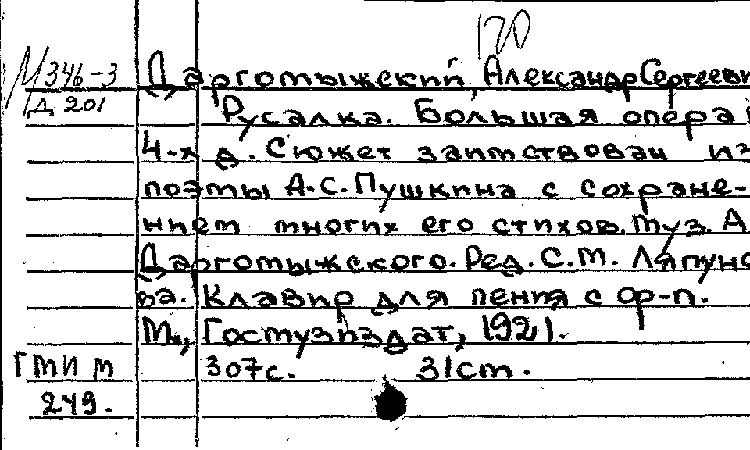 120
М 346-3
Даргомыжский, Александр Сергеевич
Д 201
Русалка. Большая опера в
4-х д. Сюжет заимствован из
поэмы А.С.Пушкина с сохране-
нием многих его стихов. Муз. А
Даргомыжского. Ред. С.М. Ляпуно
ва. Клавир для пения с ф-п.
М., Госмузиздат, 1921.
307с. 31см.
ГМИ М
249.